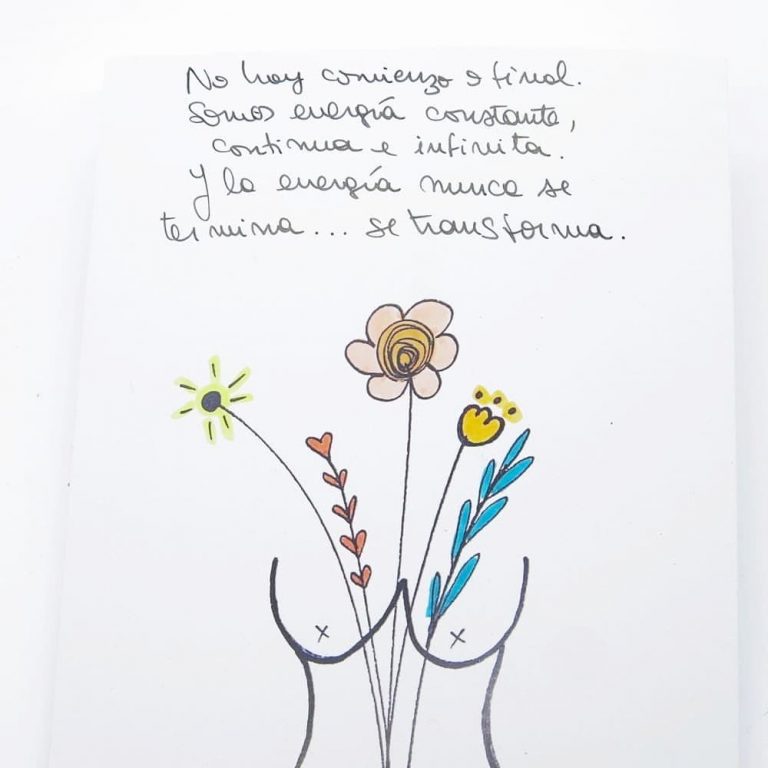 No hay comienzo o final.
Somos energía constante,
continua e infinita.
Y la energía nunca se
termina... se transforma.